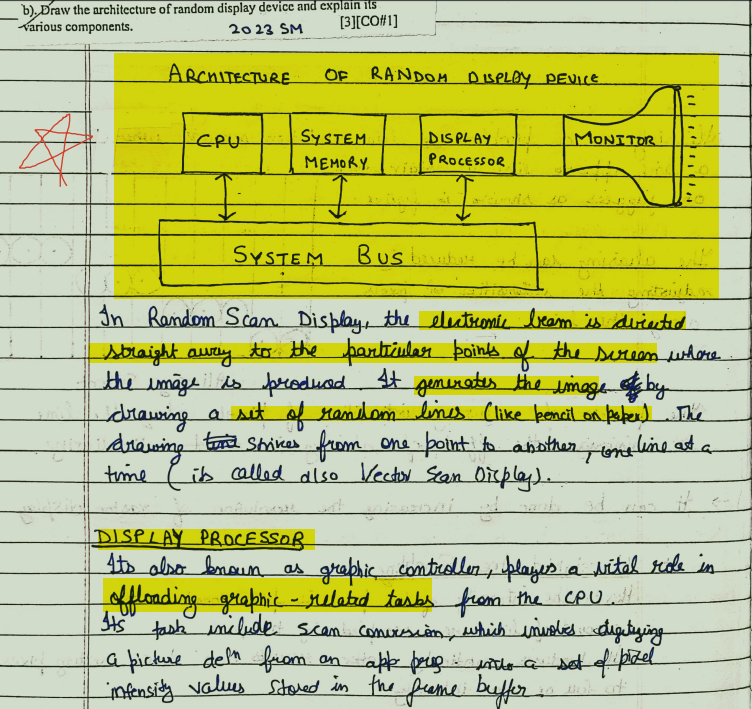 b). Draw the architecture of random display device and explain its
various components. 2023 SM [3][CO#1]
ARCHITECTURE OF RANDOM DISPLAY DEVICE
CPU
SYSTEM MEMORY
DISPLAY PROCESSOR
MONITOR
SYSTEM BUS
In Random Scan Display, the electronic beam is directed
straight away to the particular points of the screen where
the image is produced. It generates the image by
drawing a set of random lines (like pencil on paper). The
drawing strives from one point to another, one line at a
time (its called also Vector Scan Display).
DISPLAY PROCESSOR
Its also known as graphic controller, playes a vital role in
offloading graphic-related tasks from the CPU.
Its task include scan conversion, which involves digitizing
a picture defn from an app prog into a set of pixel
intensity values stored in the frame buffer.